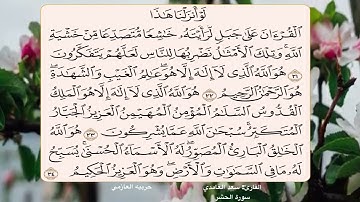 لَوْ أَنزَلْنَا هَٰذَا
ٱلْقُرْءَانَ عَلَىٰ جَبَلٍ لَّرَأَيْتَهُۥ خَٰشِعًا مُّتَصَدِّعًا مِّنْ خَشْيَةِ
ٱللَّهِ ۚ وَتِلْكَ ٱلْأَمْثَٰلُ نَضْرِبُهَا لِلنَّاسِ لَعَلَّهُمْ يَتَفَكَّرُونَ
٢١ هُوَ ٱللَّهُ ٱلَّذِى لَآ إِلَٰهَ إِلَّا هُوَ ۖ عَٰلِمُ ٱلْغَيْبِ وَٱلشَّهَٰدَةِ ۖ
هُوَ ٱلرَّحْمَٰنُ ٱلرَّحِيمُ ٢٢ هُوَ ٱللَّهُ ٱلَّذِى لَآ إِلَٰهَ إِلَّا هُوَ ٱلْمَلِكُ
ٱلْقُدُّوسُ ٱلسَّلَٰمُ ٱلْمُؤْمِنُ ٱلْمُهَيْمِنُ ٱلْعَزِيزُ ٱلْجَبَّارُ
ٱلْمُتَكَبِّرُ ۚ سُبْحَٰنَ ٱللَّهِ عَمَّا يُشْرِكُونَ ٢٣ هُوَ ٱللَّهُ
ٱلْخَٰلِقُ ٱلْبَارِئُ ٱلْمُصَوِّرُ ۖ لَهُ ٱلْأَسْمَآءُ ٱلْحُسْنَىٰ ۚ يُسَبِّحُ
لَهُۥ مَا فِى ٱلسَّمَٰوَٰتِ وَٱلْأَرْضِ ۖ وَهُوَ ٱلْعَزِيزُ ٱلْحَكِيمُ ٢٤
القارئ سعد الغامدي
سورة الحشر
حربيه العازمي